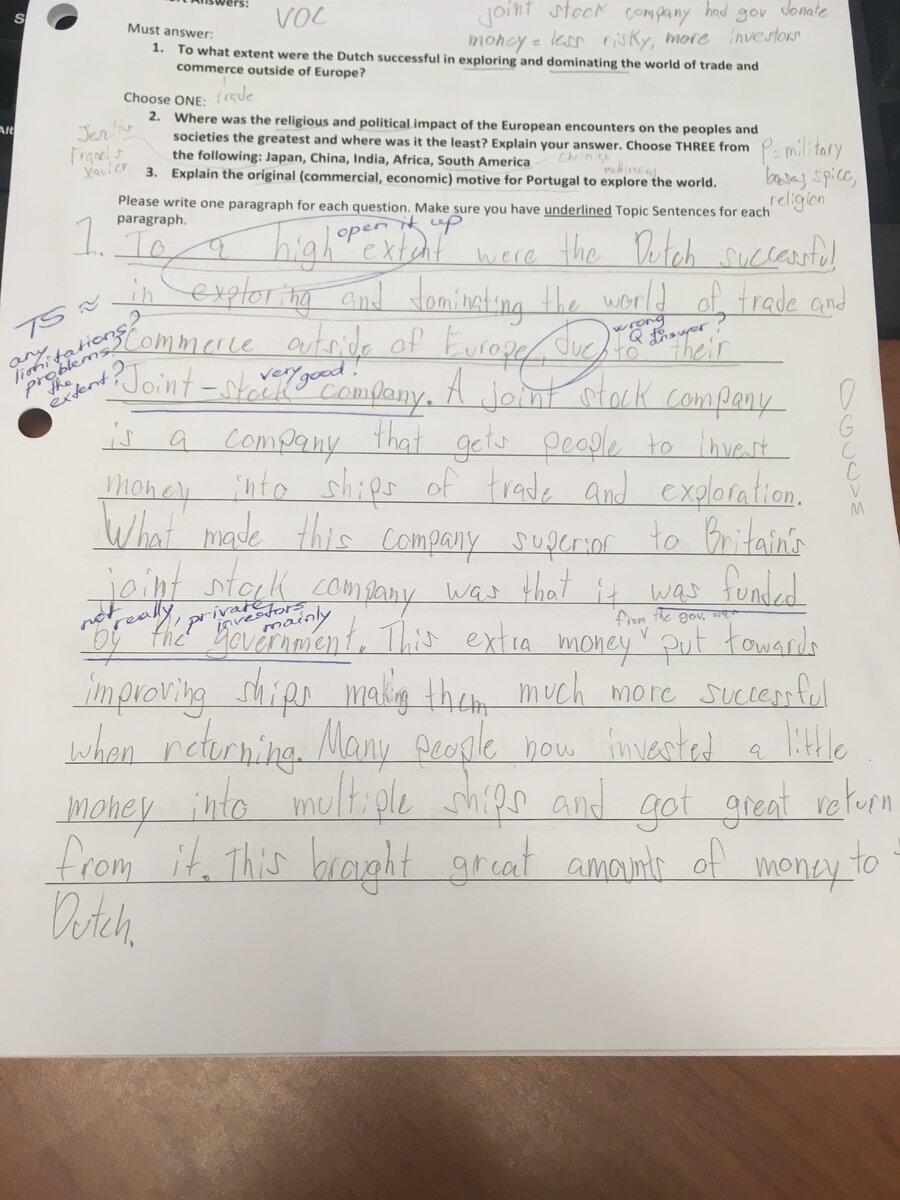 Answers:
VOC
joint stock company had gov donate
money = less risky, more investors
Must answer:
1. To what extent were the Dutch successful in exploring and dominating the world of trade and
commerce outside of Europe?
Choose ONE: trade
2. Where was the religious and political impact of the European encounters on the peoples and
societies the greatest and where was it the least? Explain your answer. Choose THREE from
the following: Japan, China, India, Africa, South America
3. Explain the original (commercial, economic) motive for Portugal to explore the world.
Francis
Xavier
P = military
spice,
religion
Please write one paragraph for each question. Make sure you have underlined Topic Sentences for each
paragraph.
open it up
1. To a high extent were the Dutch successful
in exploring and dominating the world of trade and
TS ≈
any
limitations?
problems?
the
extent?
wrong
Q to
answer?
Commerce outside of Europe, due to their
very good!
Joint-stock company. A joint stock company
is a company that gets people to invest
money into ships of trade and exploration.
What made this company superior to Britain's
joint stock company was that it was funded
not really, private
investors
mainly
from the gov. was
by the government. This extra money v put towards
improving ships making them much more successful
when returning. Many people now invested a little
money into multiple ships and got great return
from it. This brought great amounts of money to
Dutch.
D
G
C
C
V
M